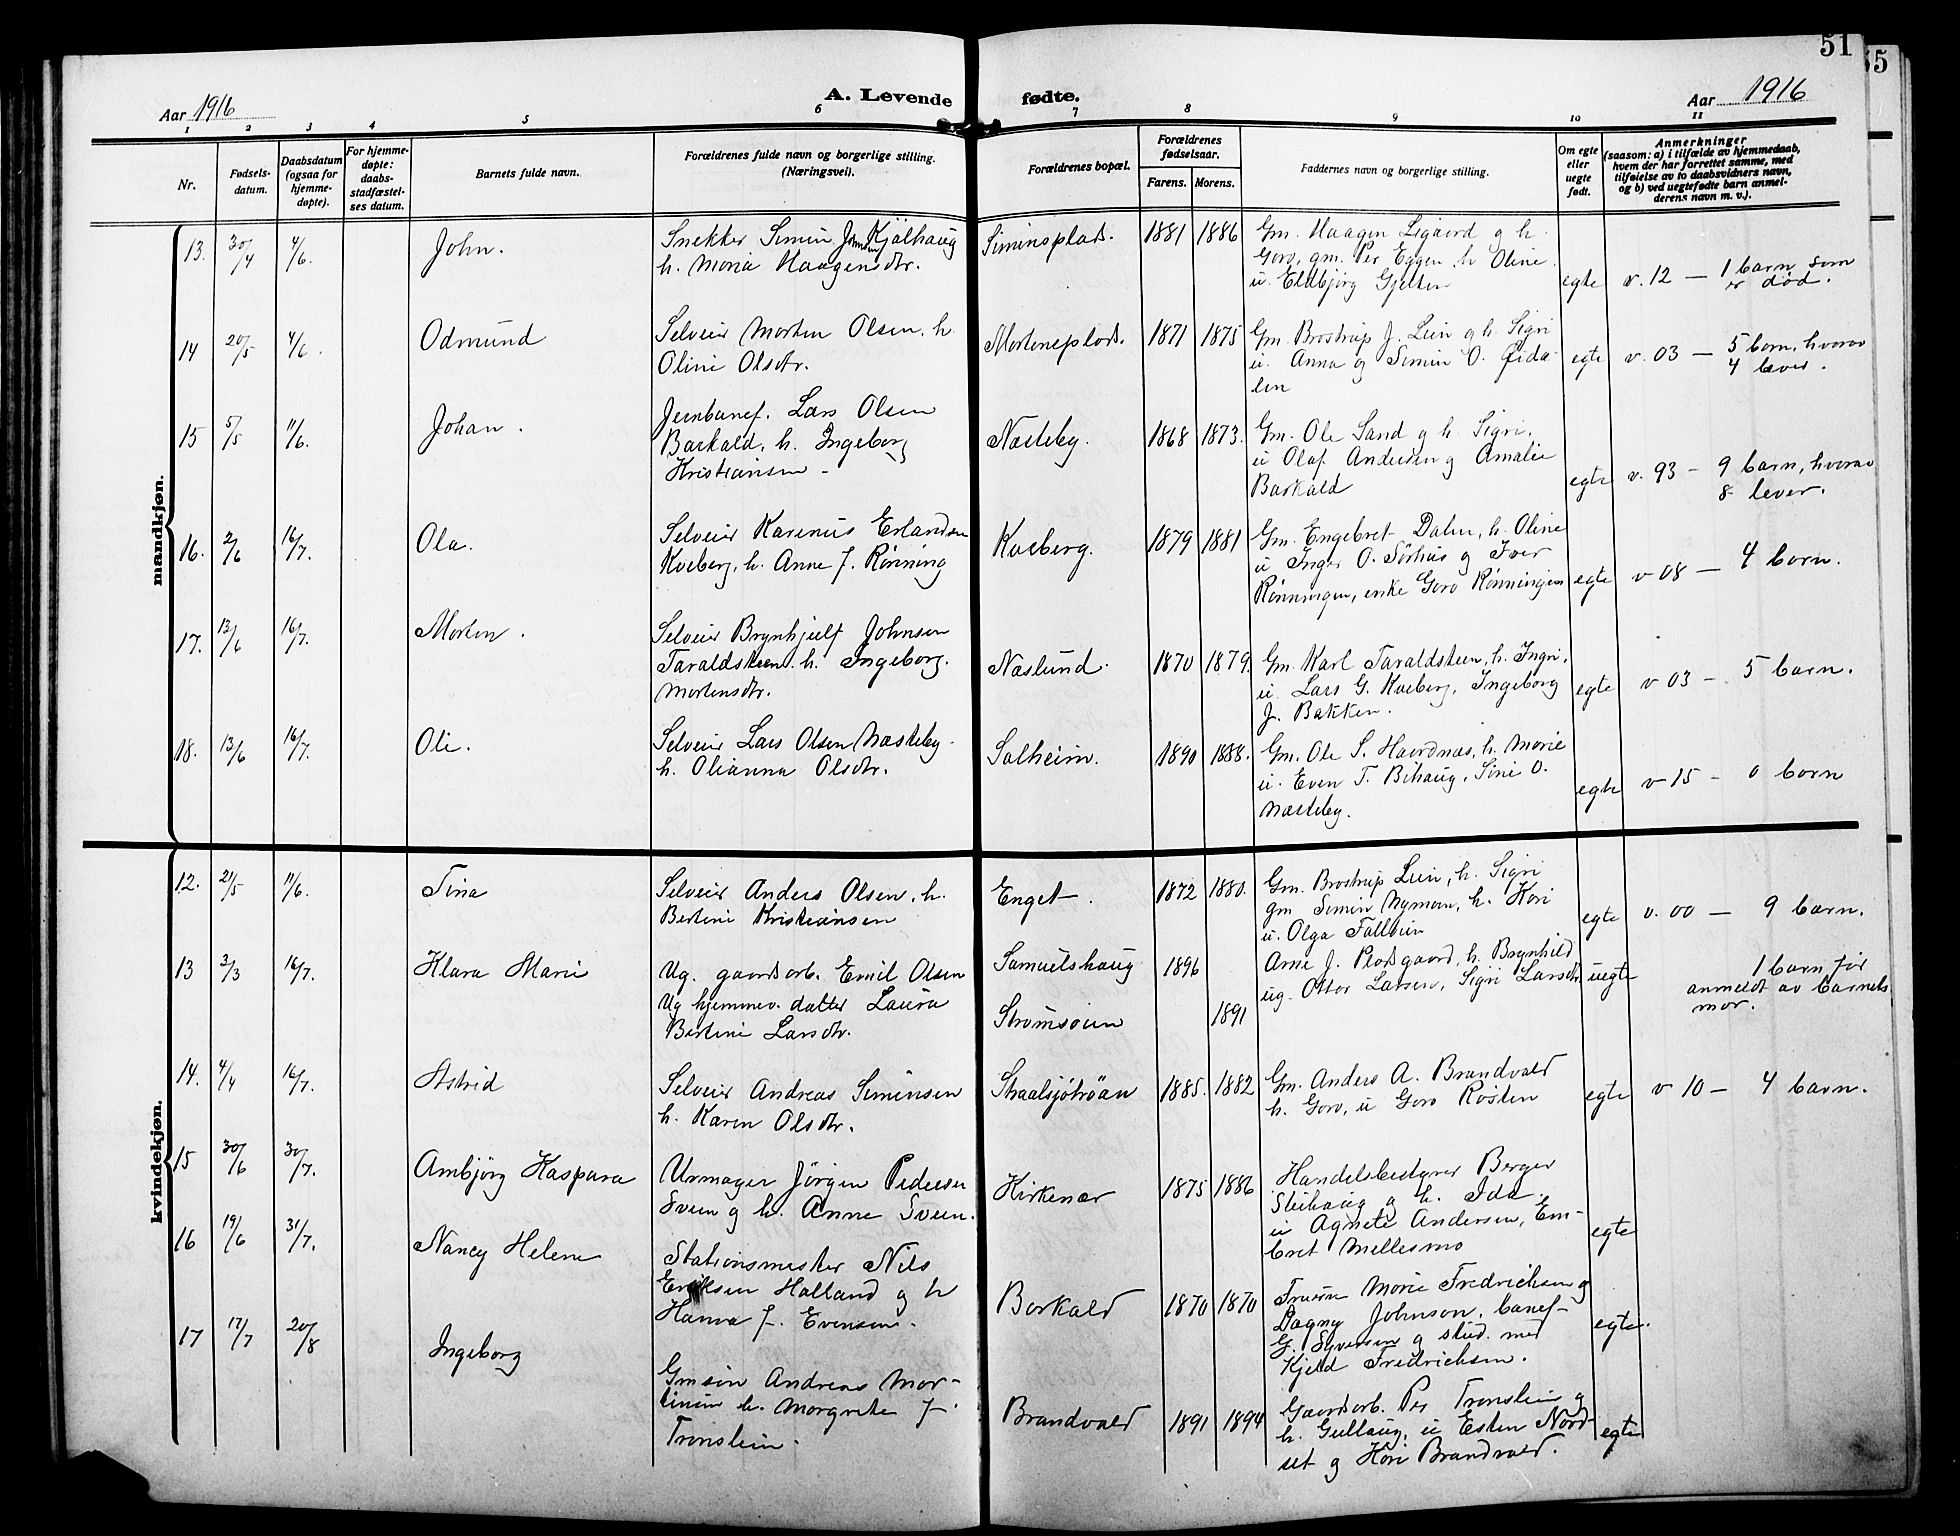 51
55
Aar 1916
A. Levende fødte.
Aar 1916
1 2 3 4 5 6 7 8 9 10 11
Nr.
Fødsels-
datum.
Daabsdatum
(ogsaa for
hjemme-
døpte).
For hjemme-
døpte:
daabs-
stadfæstel-
ses datum.
Barnets fulde navn.
Forældrenes fulde navn og borgerlige stilling.
(Næringsvei).
Forældrenes bopæl.
Forældrenes
fødselsaar.
Farens. Morens.
Faddernes navn og borgerlige stilling.
Om egte
eller
uegte
født.
Anmerkninger
(saasom: a) i tilfælde av hjemmedaab,
hvem der har forrettet samme, med
tilføielse av to daabsvidners navn,
og b) ved uegtefødte barn anmel-
derens navn m. v.).
mandkjøn.
13. 30/4 4/6. John.
Snekker Simin Johnsen Kjølhaug
h. Maria Haagensdtr.
Siminsplads. 1881 1886
Gm. Haagen Ligaard g h.
Goro, gm. Per Eggen h Oline
u. Eldbjørg Gjelten
egte v. 12 — 1 barn som
er død.
14 20/5 4/6. Odmund
Selveier Morten Olsen. h.
Oline Olsdtr.
Mortensplads. 1871 1875
Gm. Brostrup J. Lien g h. Sigri
u. Anna og Simin O. Øida-
len
egte v. 03 — 5 barn, hvorav
4 lever.
15 5/5 11/6. Johan.
Jernbanef. Lars Olsen
Barkald, h. Ingeborg
Kristiansen -
Næsteby. 1868 1873.
Gm. Ole Sand g h. Sigri.
u Olaf Andersen g Amalie
Barkald
egte v. 93 - 9 barn, hvorav
8 lever.
16. 2/6 16/7. Ola.
Selveier Karenus Erlandsen
Kveberg, h. Anne f. Rønning
Kveberg. 1879 1881
Gm. Engebret Dalen, h. Oline
u Inger O. Sørhus g Iver
Rønningen, enke Goro Rønningen
egte v 08 — 4 barn.
17. 13/6 16/7. Morten.
Selveier Brynhjulf Johnsen
Taraldsteen. h. Ingeborg.
Mortensdtr.
Næslund. 1870 1879.
Gm. Karl Taraldsteen, h. Ingri,
u. Lars G. Kveberg, Ingeborg
J. Bakken.
egte v 03 - 5 barn.
18. 13/6 16/7. Ole.
Selveier Lars Olsen Næsteby.
h. Olianna Olsdtr.
Solheim. 1890 1888.
Gm. Ole S. Havrdnæs, h. Marie
u. Even T. Bihaug, Sine O.
Næsteby.
egte v 15 - 0 barn
kvindekjøn.
12. 21/5 11/6. Tina
Selveier Anders Olsen, h.
Bertine Kristiansen
Enget. 1872 1880.
Gm. Brostrup Lien, h. Sigri
gm Simin Nyman, h. Kari
u. Olga Fallöien
egte v. 00 — 9 barn.
13 3/3 16/7. Klara Marie
Ug. gaardsarb. Emil Olsen
Ug hjemmev. datter Laura
Bertine Larsdtr.
Samuelshaug 1896
Strømsøien 1891
Arne J. Plodsgaard, h. Brynhild
ug. Ottar Larsen, Sigri Larsdtr
uegte
1 barn før
anmeldt av barnets
mor.
14. 4/4 16/7. Astrid
Selveier Andreas Siminsen
h. Karen Olsdtr.
Skaalsjøtrøan 1885. 1882
Gm. Anders A. Brandvald
h. Goro, u Goro Røsten
egte v 10 — 4 barn.
15 30/6 30/7. Ambjörg Kaspara
Urmager Jörgen Pedersen
Sveen g h. Anne Sveen.
Kirkenær 1875 1886
Handelsbestyrer Berger
Steihaug g h. Ida,
u Agnete Andersen, Em-
bret Mellesmo
egte
16 19/6 31/7. Nancy Helene
Stationsmester Nils
Eriksen Halland og h
Hanna f. Evensen.
Barkald 1870 1870
Fruerne Marie Fredrichsen g
Dagny Johnson, banef-
G. Syversen g stud. med
Kjeld Fredrichsen.
egte.
17 17/7 20/8 Ingeborg
Gmsøn Andreas Mor-
tinsen h. Margrete f.
Tronslien.
Brandvald 1891 1894
Gaardarb. Per Tronslien g
h. Gullaug, u Esten Nord-
set g Kari Brandvald.
egte